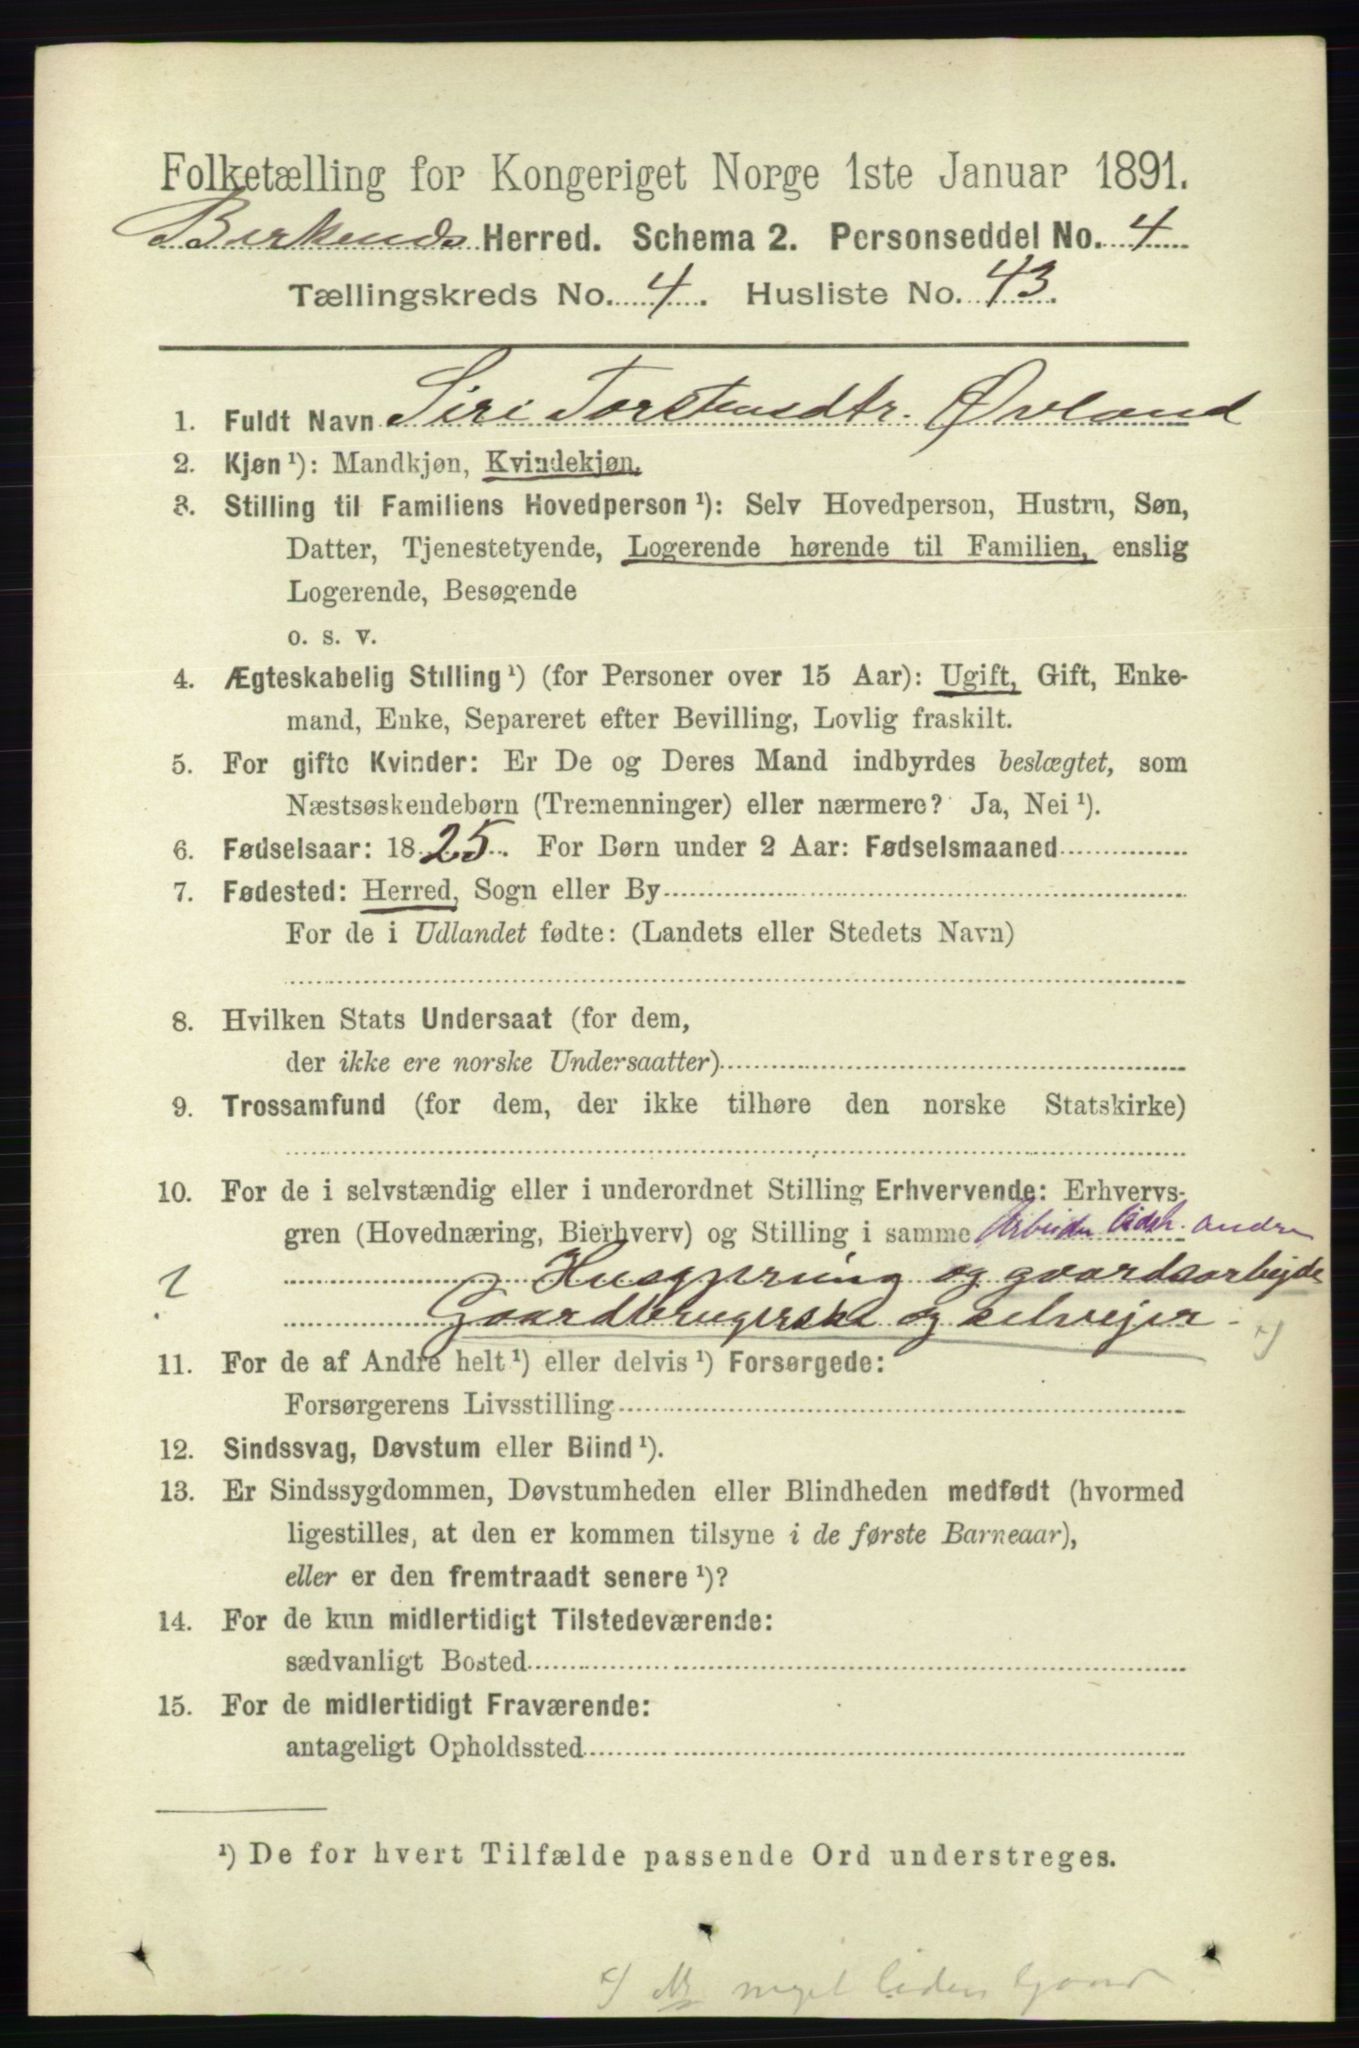 Folketælling for Kongeriget Norge 1ste Januar 1891.
Birkenes Herred. Schema 2. Personseddel No. 4
Tællingskreds No. 4. Husliste No. 43.
1. Fuldt Navn Siri Torstensdtr. Øvland
2. Kjøn¹): Mandkjøn, Kvindekjøn.
3. Stilling til Familiens Hovedperson¹): Selv Hovedperson, Hustru, Søn,
Datter, Tjenestetyende, Logerende hørende til Familien, enslig
Logerende, Besøgende
o. s. v.
4. Ægteskabelig Stilling¹) (for Personer over 15 Aar): Ugift, Gift, Enke-
mand, Enke, Separeret efter Bevilling, Lovlig fraskilt.
5. For gifte Kvinder: Er De og Deres Mand indbyrdes beslægtet, som
Næstsøskendebørn (Tremenninger) eller nærmere? Ja, Nei¹).
6. Fødselsaar: 1825. For Børn under 2 Aar: Fødselsmaaned
7. Fødested: Herred, Sogn eller By
For de i Udlandet fødte: (Landets eller Stedets Navn)
8. Hvilken Stats Undersaat (for dem,
der ikke ere norske Undersaatter)
9. Trossamfund (for dem, der ikke tilhøre den norske Statskirke)
10. For de i selvstændig eller i underordnet Stilling Erhvervende: Erhvervs-
gren (Hovednæring, Bierhverv) og Stilling i samme Arbeider andre
Husgjerning og gaardsarbejde
gaardbrugerske og selvejer. ×)
11. For de af Andre helt¹) eller delvis¹) Forsørgede:
Forsørgerens Livsstilling
12. Sindssvag, Døvstum eller Blind¹).
13. Er Sindssygdommen, Døvstumheden eller Blindheden medfødt (hvormed
ligestilles, at den er kommen tilsyne i de første Barneaar),
eller er den fremtraadt senere¹)?
14. For de kun midlertidigt Tilstedeværende:
sædvanligt Bosted
15. For de midlertidigt Fraværende:
antageligt Opholdssted
¹) De for hvert Tilfælde passende Ord understreges.
×) meget liden Gaard